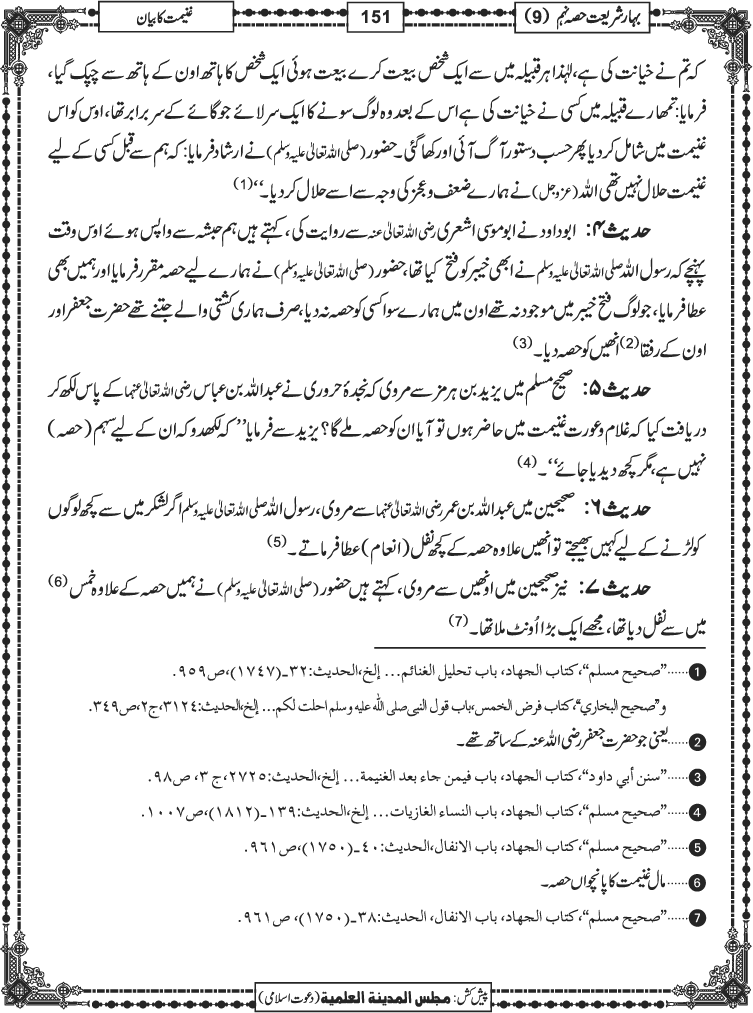 بہار شریعت حصہ نہم (9)
151
غنیمت کا بیان
کہ تم نے خیانت کی ہے، لہٰذا ہر قبیلہ میں سے ایک شخص بیعت کرے بیعت ہوئی ایک شخص کا ہاتھ اون کے ہاتھ سے چپک گیا،
فرمایا: تمھارے قبیلہ میں کسی نے خیانت کی ہے اس کے بعد وہ لوگ سونے کا ایک سر لائے جو گائے کے سر برابر تھا، اوس کو اس
غنیمت میں شامل کر دیا پھر حسب دستور آگ آئی اور کھا گئی۔ حضور (صلی اللہ تعالیٰ علیہ وسلم) نے ارشاد فرمایا: کہ ہم سے قبل کسی کے لیے
غنیمت حلال نہیں تھی اللہ (عزوجل) نے ہمارے ضعف و عجز کی وجہ سے اسے حلال کر دیا۔“ (1)
حدیث ۴: ابو داود نے ابو موسی اشعری رضی اللہ تعالیٰ عنہ سے روایت کی، کہتے ہیں ہم حبشہ سے واپس ہوئے اوس وقت
پہنچے کہ رسول اللہ صلی اللہ تعالیٰ علیہ وسلم نے ابھی خیبر کو فتح کیا تھا، حضور (صلی اللہ تعالیٰ علیہ وسلم) نے ہمارے لیے حصہ مقرر فرمایا اور ہمیں بھی
عطا فرمایا، جو لوگ فتح خیبر میں موجود نہ تھے اون میں ہمارے سوا کسی کو حصہ نہ دیا، صرف ہماری کشتی والے جتنے تھے حضرت جعفر اور
اون کے رفقا (2) انھیں کو حصہ دیا۔ (3)
حدیث ۵: صحیح مسلم میں یزید بن ہرمز سے مروی کہ نجدۂ حروری نے عبداللہ بن عباس رضی اللہ تعالیٰ عنہما کے پاس لکھ کر
دریافت کیا کہ غلام و عورت غنیمت میں حاضر ہوں تو آیا ان کو حصہ ملے گا؟ یزید سے فرمایا ”کہ لکھدو کہ ان کے لیے سہم (حصہ)
نہیں ہے، مگر کچھ دیدیا جائے“۔ (4)
حدیث ۶: صحیحین میں عبداللہ بن عمر رضی اللہ تعالیٰ عنہما سے مروی، رسول اللہ صلی اللہ تعالیٰ علیہ وسلم اگر لشکر میں سے کچھ لوگوں
کو لڑنے کے لیے کہیں بھیجتے تو انھیں علاوہ حصہ کے کچھ نفل (انعام) عطا فرماتے۔ (5)
حدیث ۷: نیز صحیحین میں اونھیں سے مروی، کہتے ہیں حضور (صلی اللہ تعالیٰ علیہ وسلم) نے ہمیں حصہ کے علاوہ خمس (6)
میں سے نفل دیا تھا، مجھے ایک بڑا اُونٹ ملا تھا۔ (7)
1 ......”صحیح مسلم“، کتاب الجهاد، باب تحلیل الغنائم... إلخ، الحدیث: ۳۲۔(۱۷۴۷)، ص۹۵۹.
و”صحیح البخاري“، کتاب فرض الخمس، باب قول النبی صلی اللہ علیہ وسلم احلت لکم... إلخ، الحدیث: ۳۱۲۴، ج۲، ص۳۴۹.
2 ......یعنی جو حضرت جعفر رضی اللہ عنہ کے ساتھ تھے۔
3 ......”سنن أبي داود“، کتاب الجهاد، باب فیمن جاء بعد الغنیمة... إلخ، الحدیث: ۲۷۲۵، ج ۳، ص۹۸.
4 ......”صحیح مسلم“، کتاب الجهاد، باب النساء الغازیات... إلخ، الحدیث: ۱۳۹۔(۱۸۱۲)، ص۱۰۰۷.
5 ......”صحیح مسلم“، کتاب الجهاد، باب الانفال، الحدیث: ۴۰۔(۱۷۵۰)، ص۹۶۱.
6 ......مال غنیمت کا پانچواں حصہ۔
7 ......”صحیح مسلم“، کتاب الجهاد، باب الانفال، الحدیث: ۳۸۔(۱۷۵۰)، ص۹۶۱.
پیش کش: مجلس المدینة العلمیة (دعوت اسلامی)